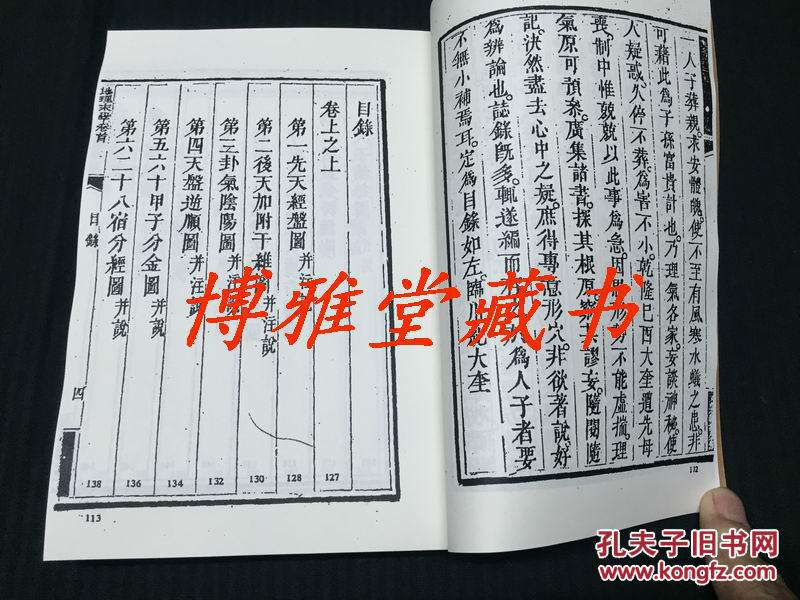 人子葬親。求安體魄。使不至有風寒水蟻之患。非
可藉此為子孫富貴計也。乃理氣各家。妄談神秘。使
人疑惑。久停不葬。為害不小。乾隆己酉大奎遭先母
喪。制中惟兢兢以此事為急。因
不能虛揣。理
氣原可預參。廣集諸書。探其根原。
謬妄。隨閱隨
記。決然盡去心中之疑。庶得專意形穴。非欲著說。好
為辨論也。誌錄既多。輒遂編而
為人子者要
不無小補焉耳。定為目錄如左。臨川
大奎
112
目錄
卷上之上 127
第一先天經盤圖 并注 128
第二後天加附干維圖 并注說 130
第三卦氣陰陽圖 并注 132
第四天盤逆順圖 并注 134
第五六十甲子分金圖 并說 136
第六二十八宿分經圖 并說 138
目錄
四
113
博雅堂藏书
孔夫子旧书网
www.kongfz.com